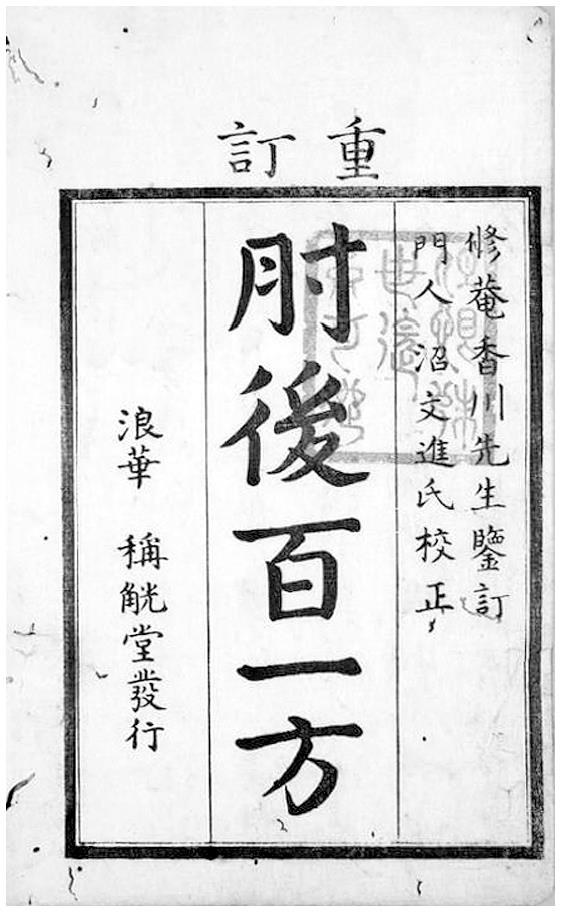 重訂
修菴香川先生鑒訂
門人 沼文進氏校正
肘後百一方
浪華 稱觥堂發行